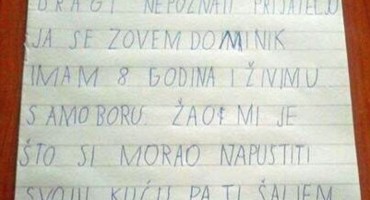 DRAGI NEPOZNATI PRIJATELJU
JA SE ZOVEM DOMINIK
IMAM 8 GODINA I ŽIVIM U
SAMOBORU. ŽAO MI JE
ŠTO SI MORAO NAPUSTITI
SVOJU KUĆU PA TI ŠALJEM